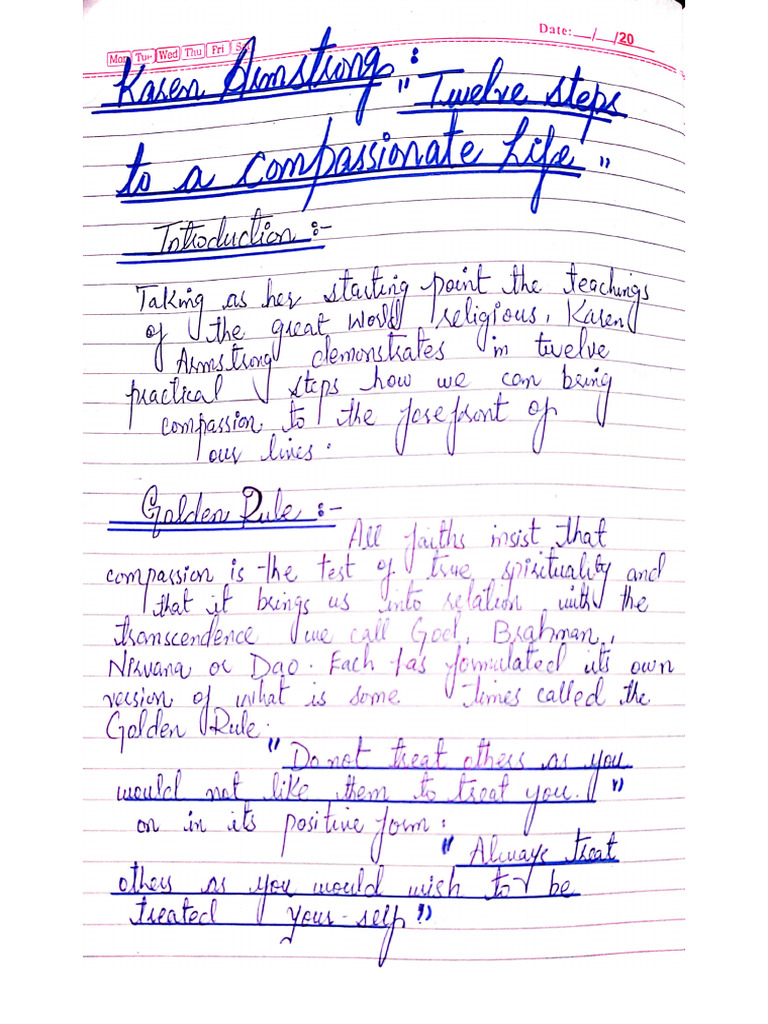 Date: __/__/20
Mon Tue Wed Thu Fri Sat
Karen Armstrong :
" Twelve steps
to a compassionate Life "
Introduction :-
Taking as her starting point the teachings
of the great World religious, Karen
Armstrong demonstrates in twelve
practical steps how we can being
compassion to the forefront of
our lines.
Golden Rule :-
All faiths insist that
compassion is the test of true spirituality and
that it brings us into relation with the
transcendence we call God, Brahman,
Nirvana or Dao. Each has formulated its own
version of what is some times called the
Golden Rule.
" Do not treat others as you
would not like them to treat you. "
or in its positive form :
" Always treat
others as you would wish to be
treated your-self "